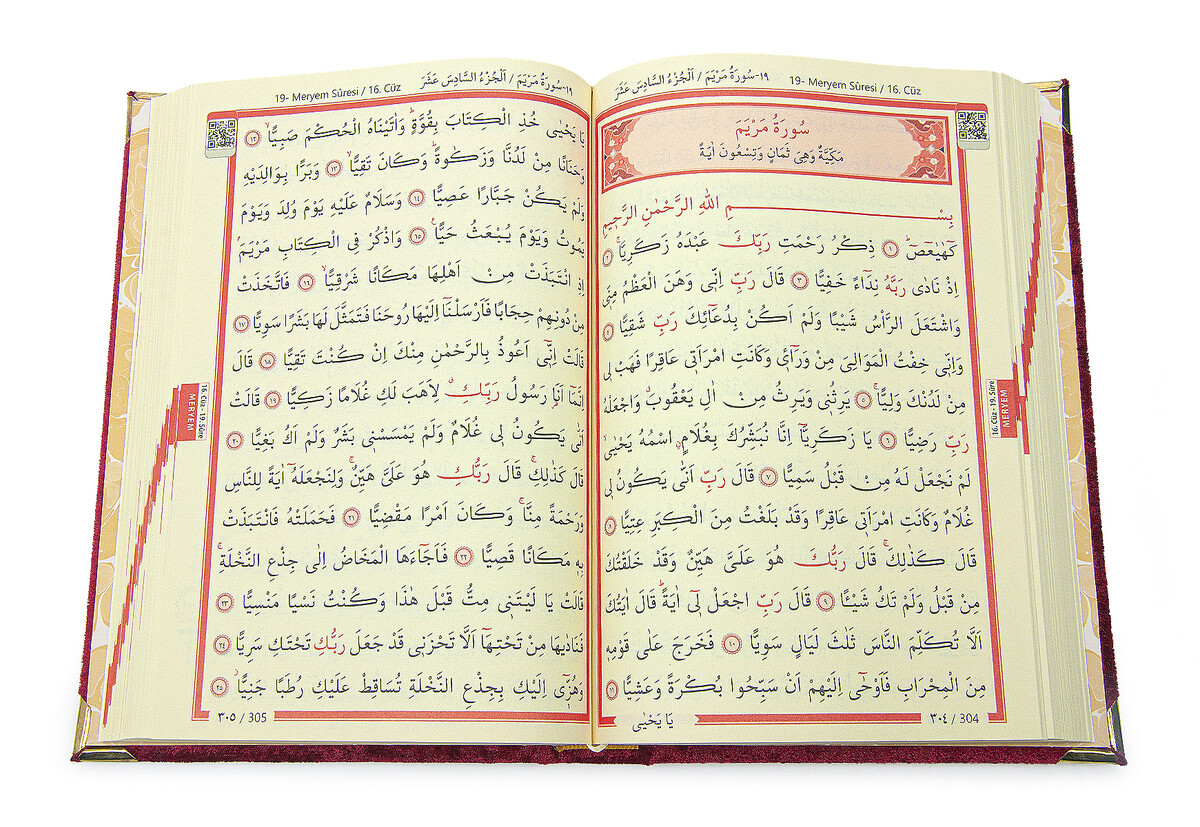 ١٩-سُورَةُ مَرْيَمَ / اَلْجُزْءُ السَّادِسَ عَشَرَ
19- Meryem Sûresi / 16. Cüz
سُورَةُ مَرْيَمَ
مَكِّيَّةٌ وَهِىَ ثَمَانٍ وَتِسْعُونَ اٰيَةً
بِسْمِ اللّٰهِ الرَّحْمٰنِ الرَّحِيمِ
كٓهٰيٰعٓصٓ ﴿١﴾ ذِكْرُ رَحْمَتِ رَبِّكَ عَبْدَهُ زَكَرِيَّاۚ ﴿٢﴾
اِذْ نَادٰى رَبَّهُ نِدَٓاءً خَفِيًّا ﴿٣﴾ قَالَ رَبِّ اِنّ۪ى وَهَنَ الْعَظْمُ مِنّ۪ى
وَاشْتَعَلَ الرَّأْسُ شَيْبًا وَلَمْ اَكُنْ بِدُعَٓائِكَ رَبِّ شَقِيًّا ﴿٤﴾
وَاِنّ۪ى خِفْتُ الْمَوَالِىَ مِنْ وَرَٓائ۪ى وَكَانَتِ امْرَاَت۪ى عَاقِرًا فَهَبْ ل۪ى
مِنْ لَدُنْكَ وَلِيًّاۙ ﴿٥﴾ يَرِثُن۪ى وَيَرِثُ مِنْ اٰلِ يَعْقُوبَۗ وَاجْعَلْهُ
رَبِّ رَضِيًّا ﴿٦﴾ يَا زَكَرِيَّٓا اِنَّا نُبَشِّرُكَ بِغُلَامٍۨ اسْمُهُ يَحْيٰىۙ
لَمْ نَجْعَلْ لَهُ مِنْ قَبْلُ سَمِيًّا ﴿٧﴾ قَالَ رَبِّ اَنّٰى يَكُونُ ل۪ى
غُلَامٌ وَكَانَتِ امْرَاَت۪ى عَاقِرًا وَقَدْ بَلَغْتُ مِنَ الْكِبَرِ عِتِيًّا ﴿٨﴾
قَالَ كَذٰلِكَۚ قَالَ رَبُّكَ هُوَ عَلَىَّ هَيِّنٌ وَقَدْ خَلَقْتُكَ
مِنْ قَبْلُ وَلَمْ تَكُ شَيْـًٔا ﴿٩﴾ قَالَ رَبِّ اجْعَلْ ل۪ٓى اٰيَةًۜ قَالَ اٰيَتُكَ
اَلَّا تُكَلِّمَ النَّاسَ ثَلٰثَ لَيَالٍ سَوِيًّا ﴿١٠﴾ فَخَرَجَ عَلٰى قَوْمِه۪
مِنَ الْمِحْرَابِ فَاَوْحٰٓى اِلَيْهِمْ اَنْ سَبِّحُوا بُكْرَةً وَعَشِيًّا ﴿١١﴾
يَا يَحْيٰى
٣٠٤ / 304
16. Cüz - 19. Sûre
MERYEM
١٩-سُورَةُ مَرْيَمَ / اَلْجُزْءُ السَّادِسَ عَشَرَ
19- Meryem Sûresi / 16. Cüz
يَا يَحْيٰى خُذِ الْكِتَابَ بِقُوَّةٍۜ وَاٰتَيْنَاهُ الْحُكْمَ صَبِيًّاۙ ﴿١٢﴾
وَحَنَانًا مِنْ لَدُنَّا وَزَكٰوةًۜ وَكَانَ تَقِيًّاۙ ﴿١٣﴾ وَبَرًّا بِوَالِدَيْهِ
وَلَمْ يَكُنْ جَبَّارًا عَصِيًّا ﴿١٤﴾ وَسَلَامٌ عَلَيْهِ يَوْمَ وُلِدَ وَيَوْمَ
يَمُوتُ وَيَوْمَ يُبْعَثُ حَيًّا۟ ﴿١٥﴾ وَاذْكُرْ فِى الْكِتَابِ مَرْيَمَۢ
اِذِ انْتَبَذَتْ مِنْ اَهْلِهَا مَكَانًا شَرْقِيًّاۙ ﴿١٦﴾ فَاتَّخَذَتْ
مِنْ دُونِهِمْ حِجَابًا فَاَرْسَلْنَٓا اِلَيْهَا رُوحَنَا فَتَمَثَّلَ لَهَا بَشَرًا سَوِيًّا ﴿١٧﴾
قَالَتْ اِنّ۪ٓى اَعُوذُ بِالرَّحْمٰنِ مِنْكَ اِنْ كُنْتَ تَقِيًّا ﴿١٨﴾ قَالَ
اِنَّمَٓا اَنَا۬ رَسُولُ رَبِّكِۗ لِاَهَبَ لَكِ غُلَامًا زَكِيًّا ﴿١٩﴾ قَالَتْ
اَنّٰى يَكُونُ ل۪ى غُلَامٌ وَلَمْ يَمْسَسْن۪ى بَشَرٌ وَلَمْ اَكُ بَغِيًّا ﴿٢٠﴾
قَالَ كَذٰلِكِۚ قَالَ رَبُّكِ هُوَ عَلَىَّ هَيِّنٌۚ وَلِنَجْعَلَهُٓ اٰيَةً لِلنَّاسِ
وَرَحْمَةً مِنَّاۚ وَكَانَ اَمْرًا مَقْضِيًّا ﴿٢١﴾ فَحَمَلَتْهُ فَانْتَبَذَتْ
بِه۪ مَكَانًا قَصِيًّا ﴿٢٢﴾ فَاَجَٓاءَهَا الْمَخَاضُ اِلٰى جِذْعِ النَّخْلَةِۚ
قَالَتْ يَا لَيْتَن۪ى مِتُّ قَبْلَ هٰذَا وَكُنْتُ نَسْيًا مَنْسِيًّا ﴿٢٣﴾
فَنَادٰيهَا مِنْ تَحْتِهَٓا اَلَّا تَحْزَن۪ى قَدْ جَعَلَ رَبُّكِ تَحْتَكِ سَرِيًّا ﴿٢٤﴾
وَهُزّ۪ٓى اِلَيْكِ بِجِذْعِ النَّخْلَةِ تُسَاقِطْ عَلَيْكِ رُطَبًا جَنِيًّاۘ ﴿٢٥﴾
٣٠٥ / 305
16. Cüz - 19. Sûre
MERYEM